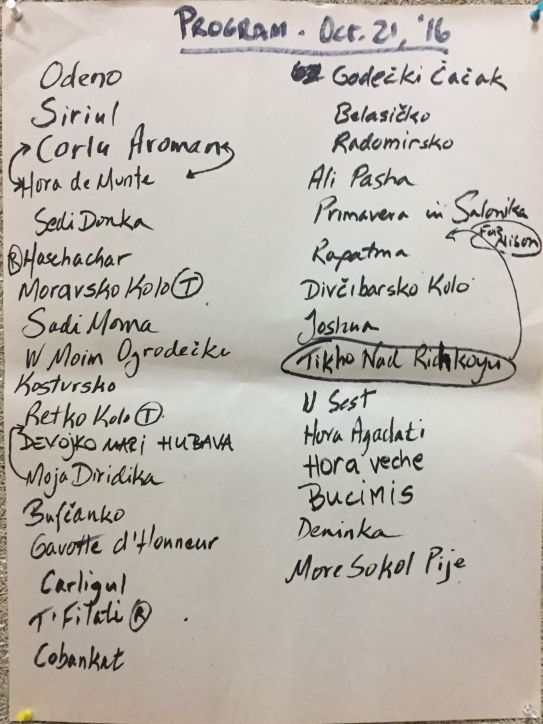 PROGRAM - Oct. 21, '16
Odeno
Siriul
Corlu Aromans
Hora de Munte
Sedi Donka
R Haschachar
Moravsko Kolo T
Sadi Moma
W Moim Ogrodečku
Kostursko
Retko Kolo T
DEVOJKO MARI HUBAVA
Moja Diridika
Bufčanko
Gavotte d'Honneur
Carligul
T'Filati R
Cobankat
Godečki Čačak
Belasičko
Radomirsko
Ali Pasha
Primavera in Salonika
For Alison
Rapatma
Divčibarsko Kolo
Joshua
Tikho Nad Richkoyu
U Sest
Hora Agadati
Hora veche
BUCIMIS
Deninka
More Sokol Pije